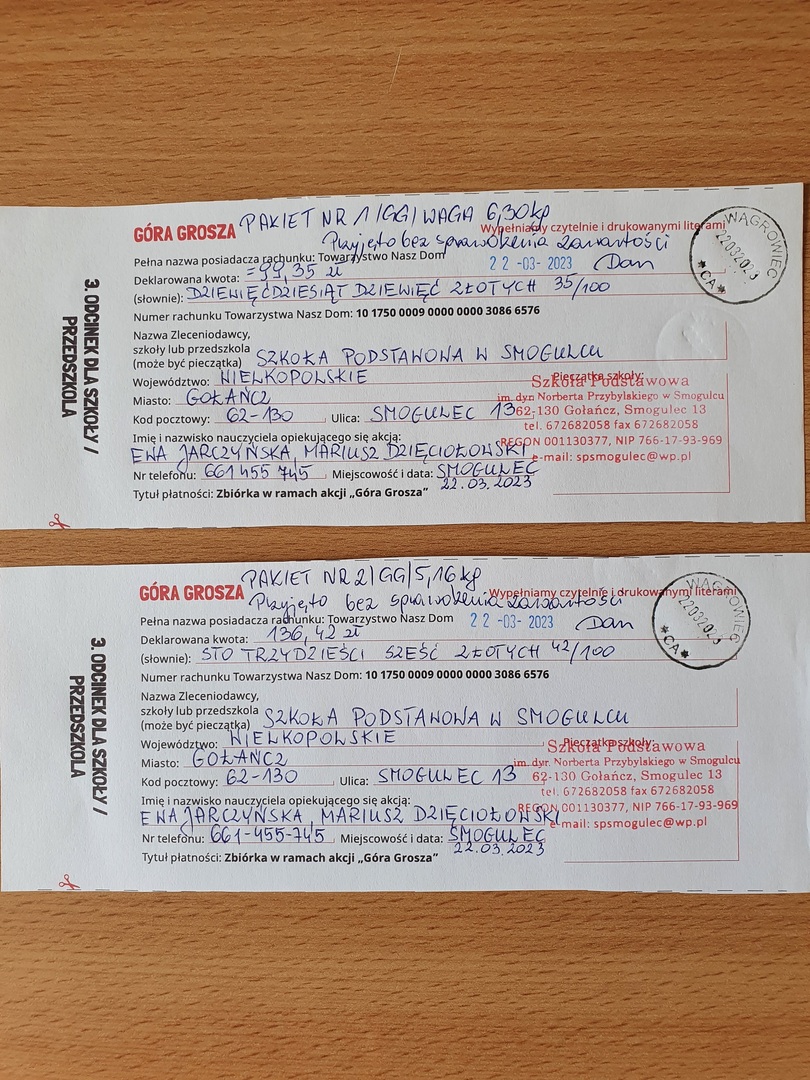 PAKIET NR 1/GG/WAGA 6,30kg
GÓRA GROSZA
Wypełniamy czytelnie i drukowanymi literami
Przyjęto bez sprawdzenia zawartości
Pełna nazwa posiadacza rachunku: Towarzystwo Nasz Dom
22-03-2023
WĄGROWIEC
22032023
*CA*
Deklarowana kwota: =99,35 zł
(słownie): DZIEWIĘĆDZIESIĄT DZIEWIĘĆ ZŁOTYCH 35/100
Numer rachunku Towarzystwa Nasz Dom: 10 1750 0009 0000 0000 3086 6576
Nazwa Zleceniodawcy,
szkoły lub przedszkola
(może być pieczątka) SZKOŁA PODSTAWOWA W SMOGULCU
Województwo: WIELKOPOLSKIE
Miasto: GOŁAŃCZ
Kod pocztowy: 62-130 Ulica: SMOGULEC 13
Imię i nazwisko nauczyciela opiekującego się akcją:
EWA JARCZYŃSKA, MARIUSZ DZIĘCIOŁOWSKI
Nr telefonu: 661 455 745 Miejscowość i data: SMOGULEC
22.03.2023
Tytuł płatności: Zbiórka w ramach akcji „Góra Grosza”
Pieczątka szkoły:
Szkoła Podstawowa
im. dyr. Norberta Przybylakiego w Smogulcu
62-130 Gołańcz, Smogulec 13
tel. 672682058 fax 672682058
REGON 001130377, NIP 766-17-93-969
e-mail: spsmogulec@wp.pl
3. ODCINEK DLA SZKOŁY /
PRZEDSZKOLA
PAKIET NR 2/GG/5,16kg
GÓRA GROSZA
Wypełniamy czytelnie i drukowanymi literami
Przyjęto bez sprawdzenia zawartości
Pełna nazwa posiadacza rachunku: Towarzystwo Nasz Dom
22-03-2023
WĄGROWIEC
22032023
*CA*
Deklarowana kwota: 136,42 zł
(słownie): STO TRZYDZIEŚCI SZEŚĆ ZŁOTYCH 42/100
Numer rachunku Towarzystwa Nasz Dom: 10 1750 0009 0000 0000 3086 6576
Nazwa Zleceniodawcy,
szkoły lub przedszkola
(może być pieczątka) SZKOŁA PODSTAWOWA W SMOGULCU
Województwo: WIELKOPOLSKIE
Miasto: GOŁAŃCZ
Kod pocztowy: 62-130 Ulica: SMOGULEC 13
Imię i nazwisko nauczyciela opiekującego się akcją:
EWA JARCZYŃSKA, MARIUSZ DZIĘCIOŁOWSKI
Nr telefonu: 661-455-745 Miejscowość i data: SMOGULEC
22.03.2023
Tytuł płatności: Zbiórka w ramach akcji „Góra Grosza”
Pieczątka szkoły:
Szkoła Podstawowa
im. dyr. Norberta Przybylakiego w Smogulcu
62-130 Gołańcz, Smogulec 13
tel. 672682058 fax 672682058
REGON 001130377, NIP 766-17-93-969
e-mail: spsmogulec@wp.pl
3. ODCINEK DLA SZKOŁY /
PRZEDSZKOLA